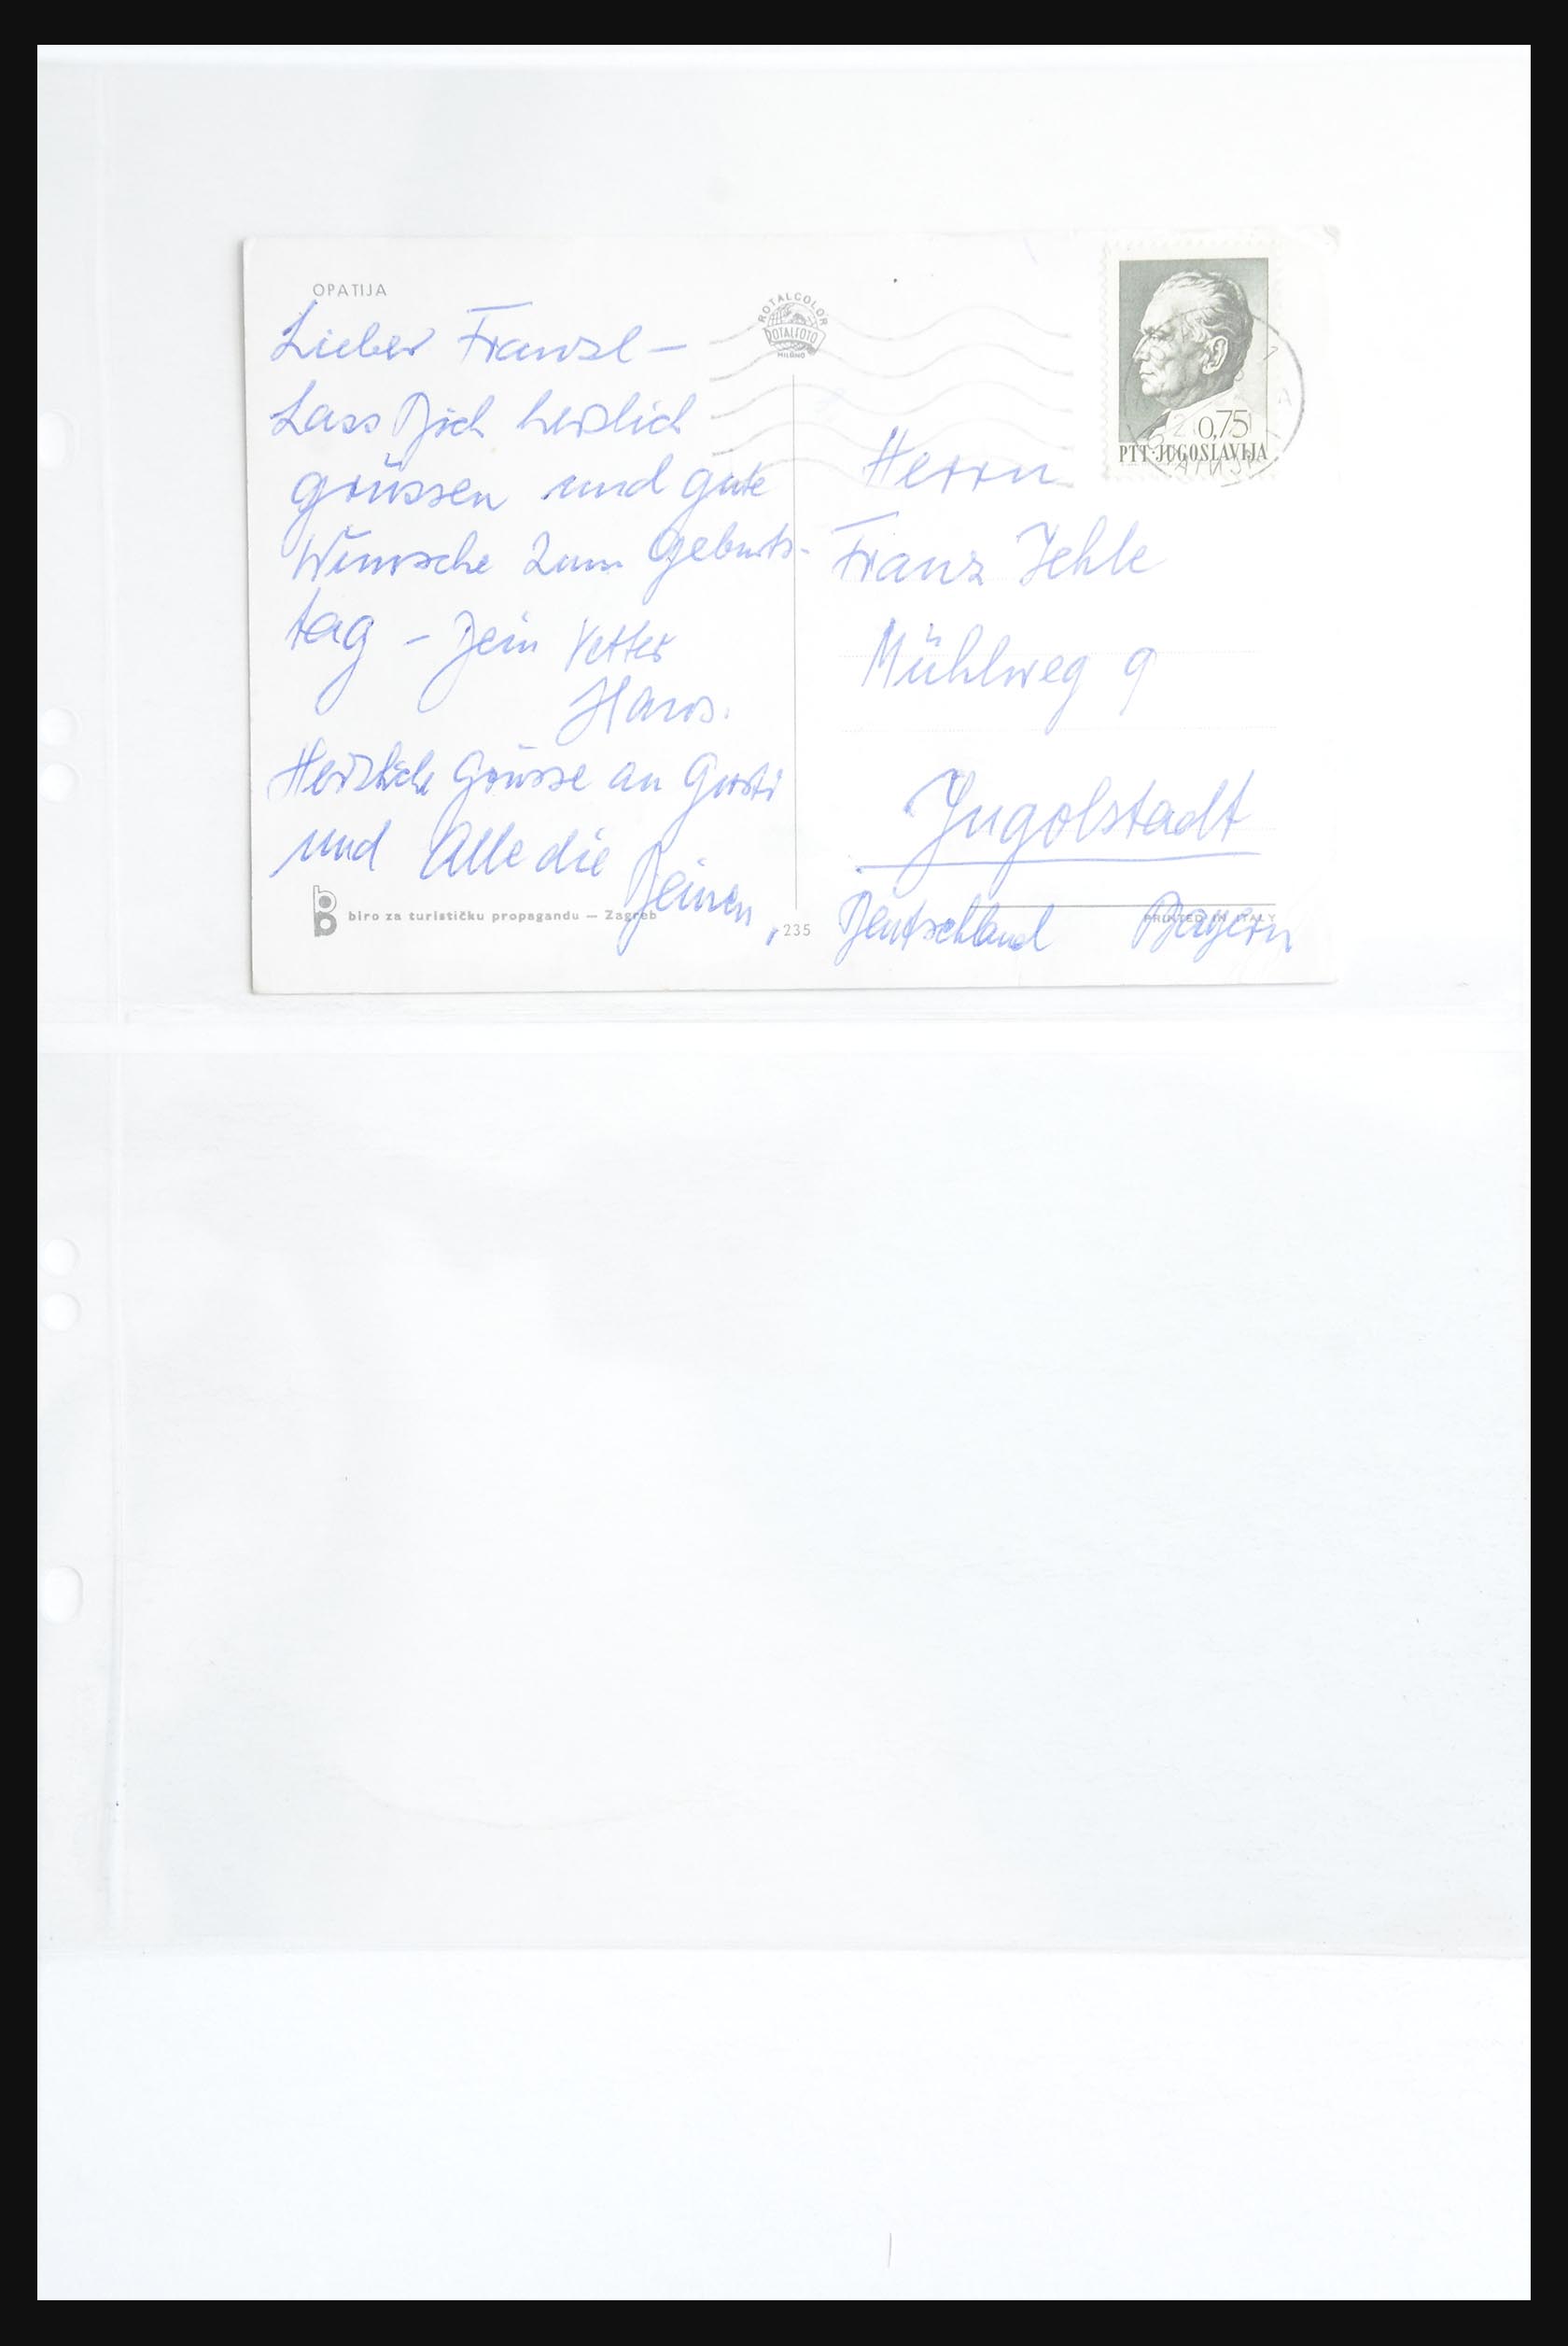 OPATIJA
Lieber Franzl –
Lass Dich herzlich
grüssen und gute
Wünsche zum Geburts-
tag – Dein Vetter
Hans.
Herzliche Grüsse an Gusti
und Alle die Deinen,
biro za turističku propagandu — Zagreb
235
ROTALCOLOR
ROTALFOTO
MILANO
0,75
PTT-JUGOSLAVIJA
Herrn
Franz Jehle
Mühlweg 9
Ingolstadt
Deutschland Bayern
PRINTED IN ITALY